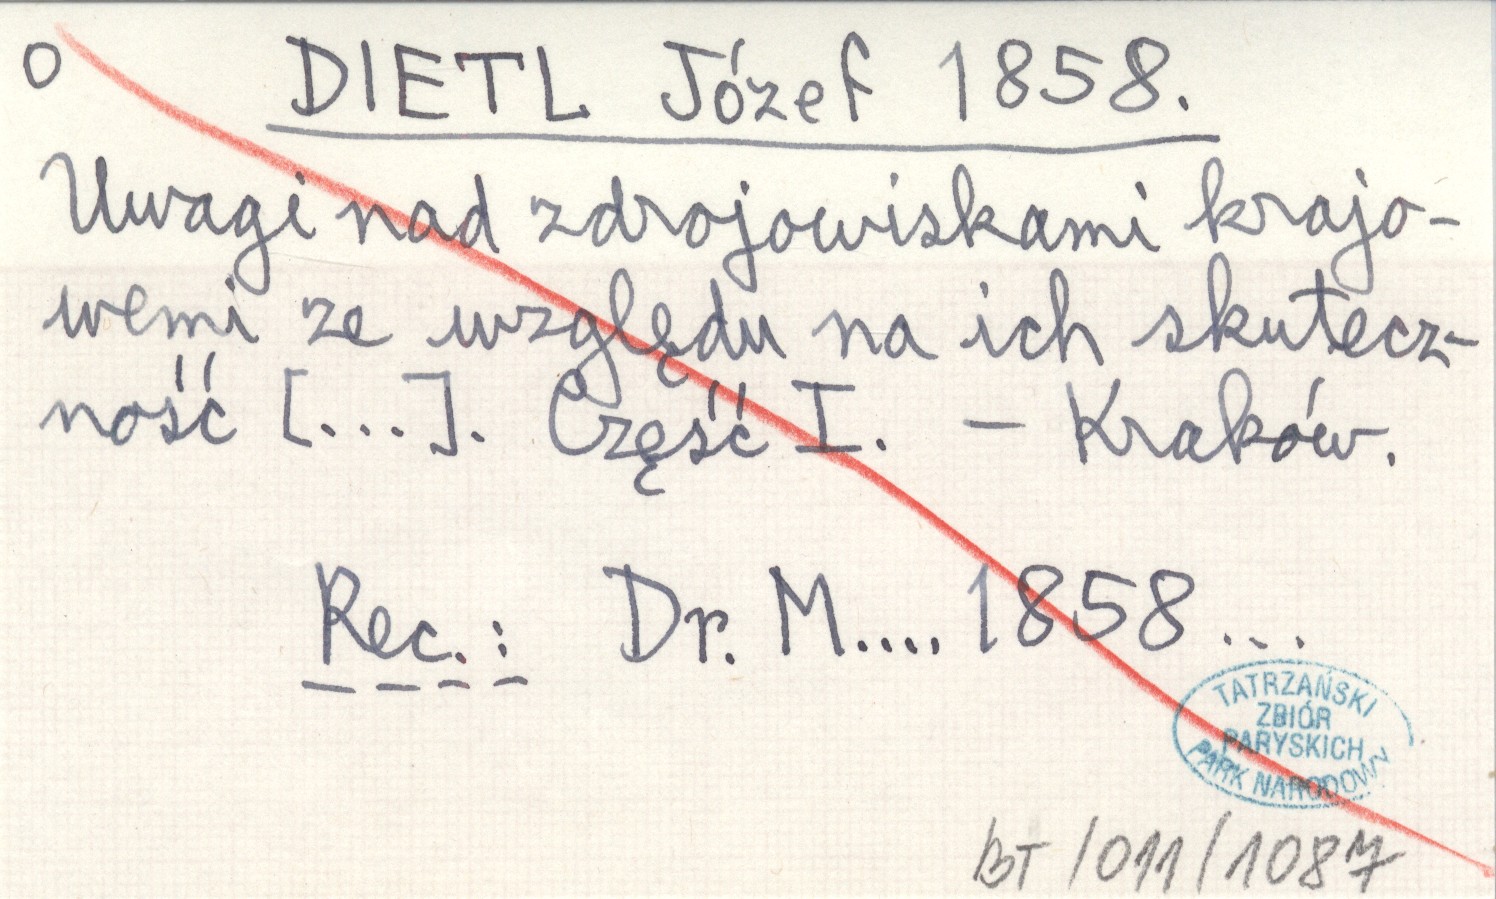 O DIETL Józef 1858.
Uwagi nad zdrojowiskami krajo-
wemi ze względu na ich skutecz-
ność [...]. Część I. – Kraków.
Rec.: Dr. M.... 1858...
TATRZAŃSKI
ZBIÓR
PARYSKICH
PARK NARODOWY
BT/011/1087